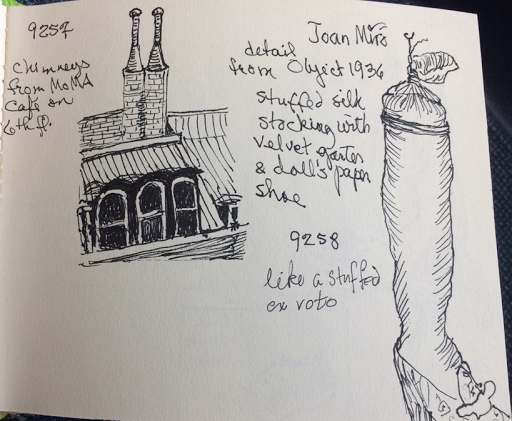 9257
chimneys
from MoMA
Cafe on
6th fl.
Joan Miro
detail
from Object 1936
stuffed silk
stocking with
velvet garter
& doll's paper
shoe
9258
like a stuffed
ex voto